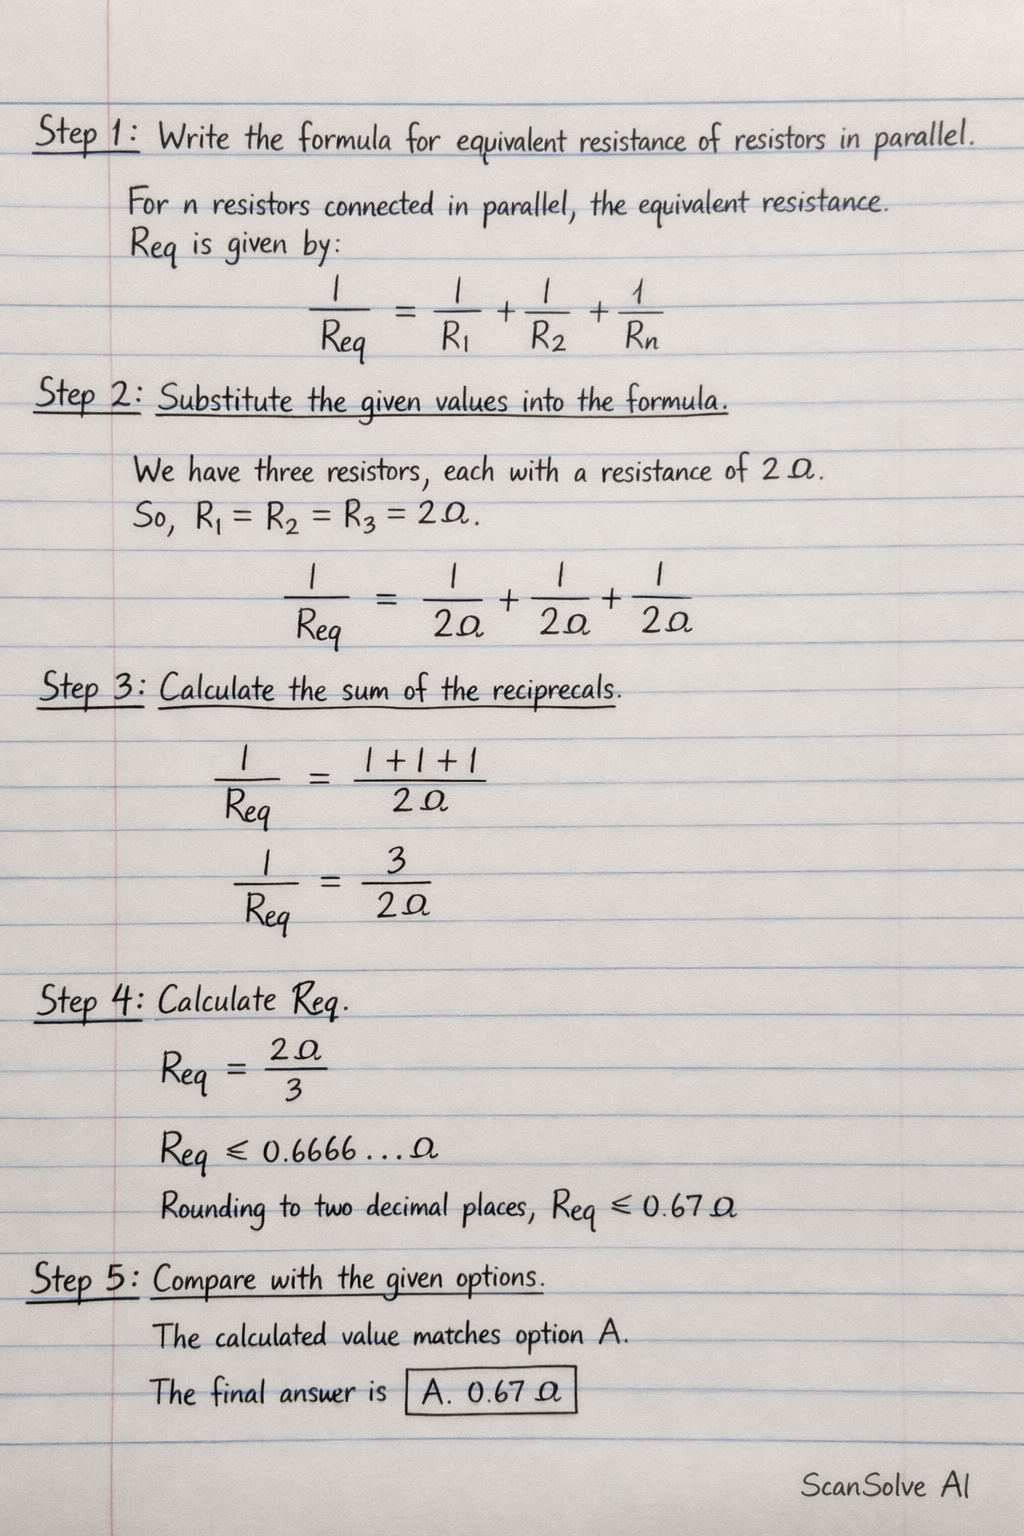 Step 1: Write the formula for equivalent resistance of resistors in parallel.
For n resistors connected in parallel, the equivalent resistance.
Req is given by:
1/Req = 1/R1 + 1/R2 + 1/Rn
Step 2: Substitute the given values into the formula.
We have three resistors, each with a resistance of 2 Ω.
So, R1 = R2 = R3 = 2Ω.
1/Req = 1/2Ω + 1/2Ω + 1/2Ω
Step 3: Calculate the sum of the reciprecals.
1/Req = 1+1+1/2Ω
1/Req = 3/2Ω
Step 4: Calculate Req.
Req = 2Ω/3
Req ⩽ 0.6666...Ω
Rounding to two decimal places, Req ⩽ 0.67Ω
Step 5: Compare with the given options.
The calculated value matches option A.
The final answer is A. 0.67 Ω
ScanSolve AI